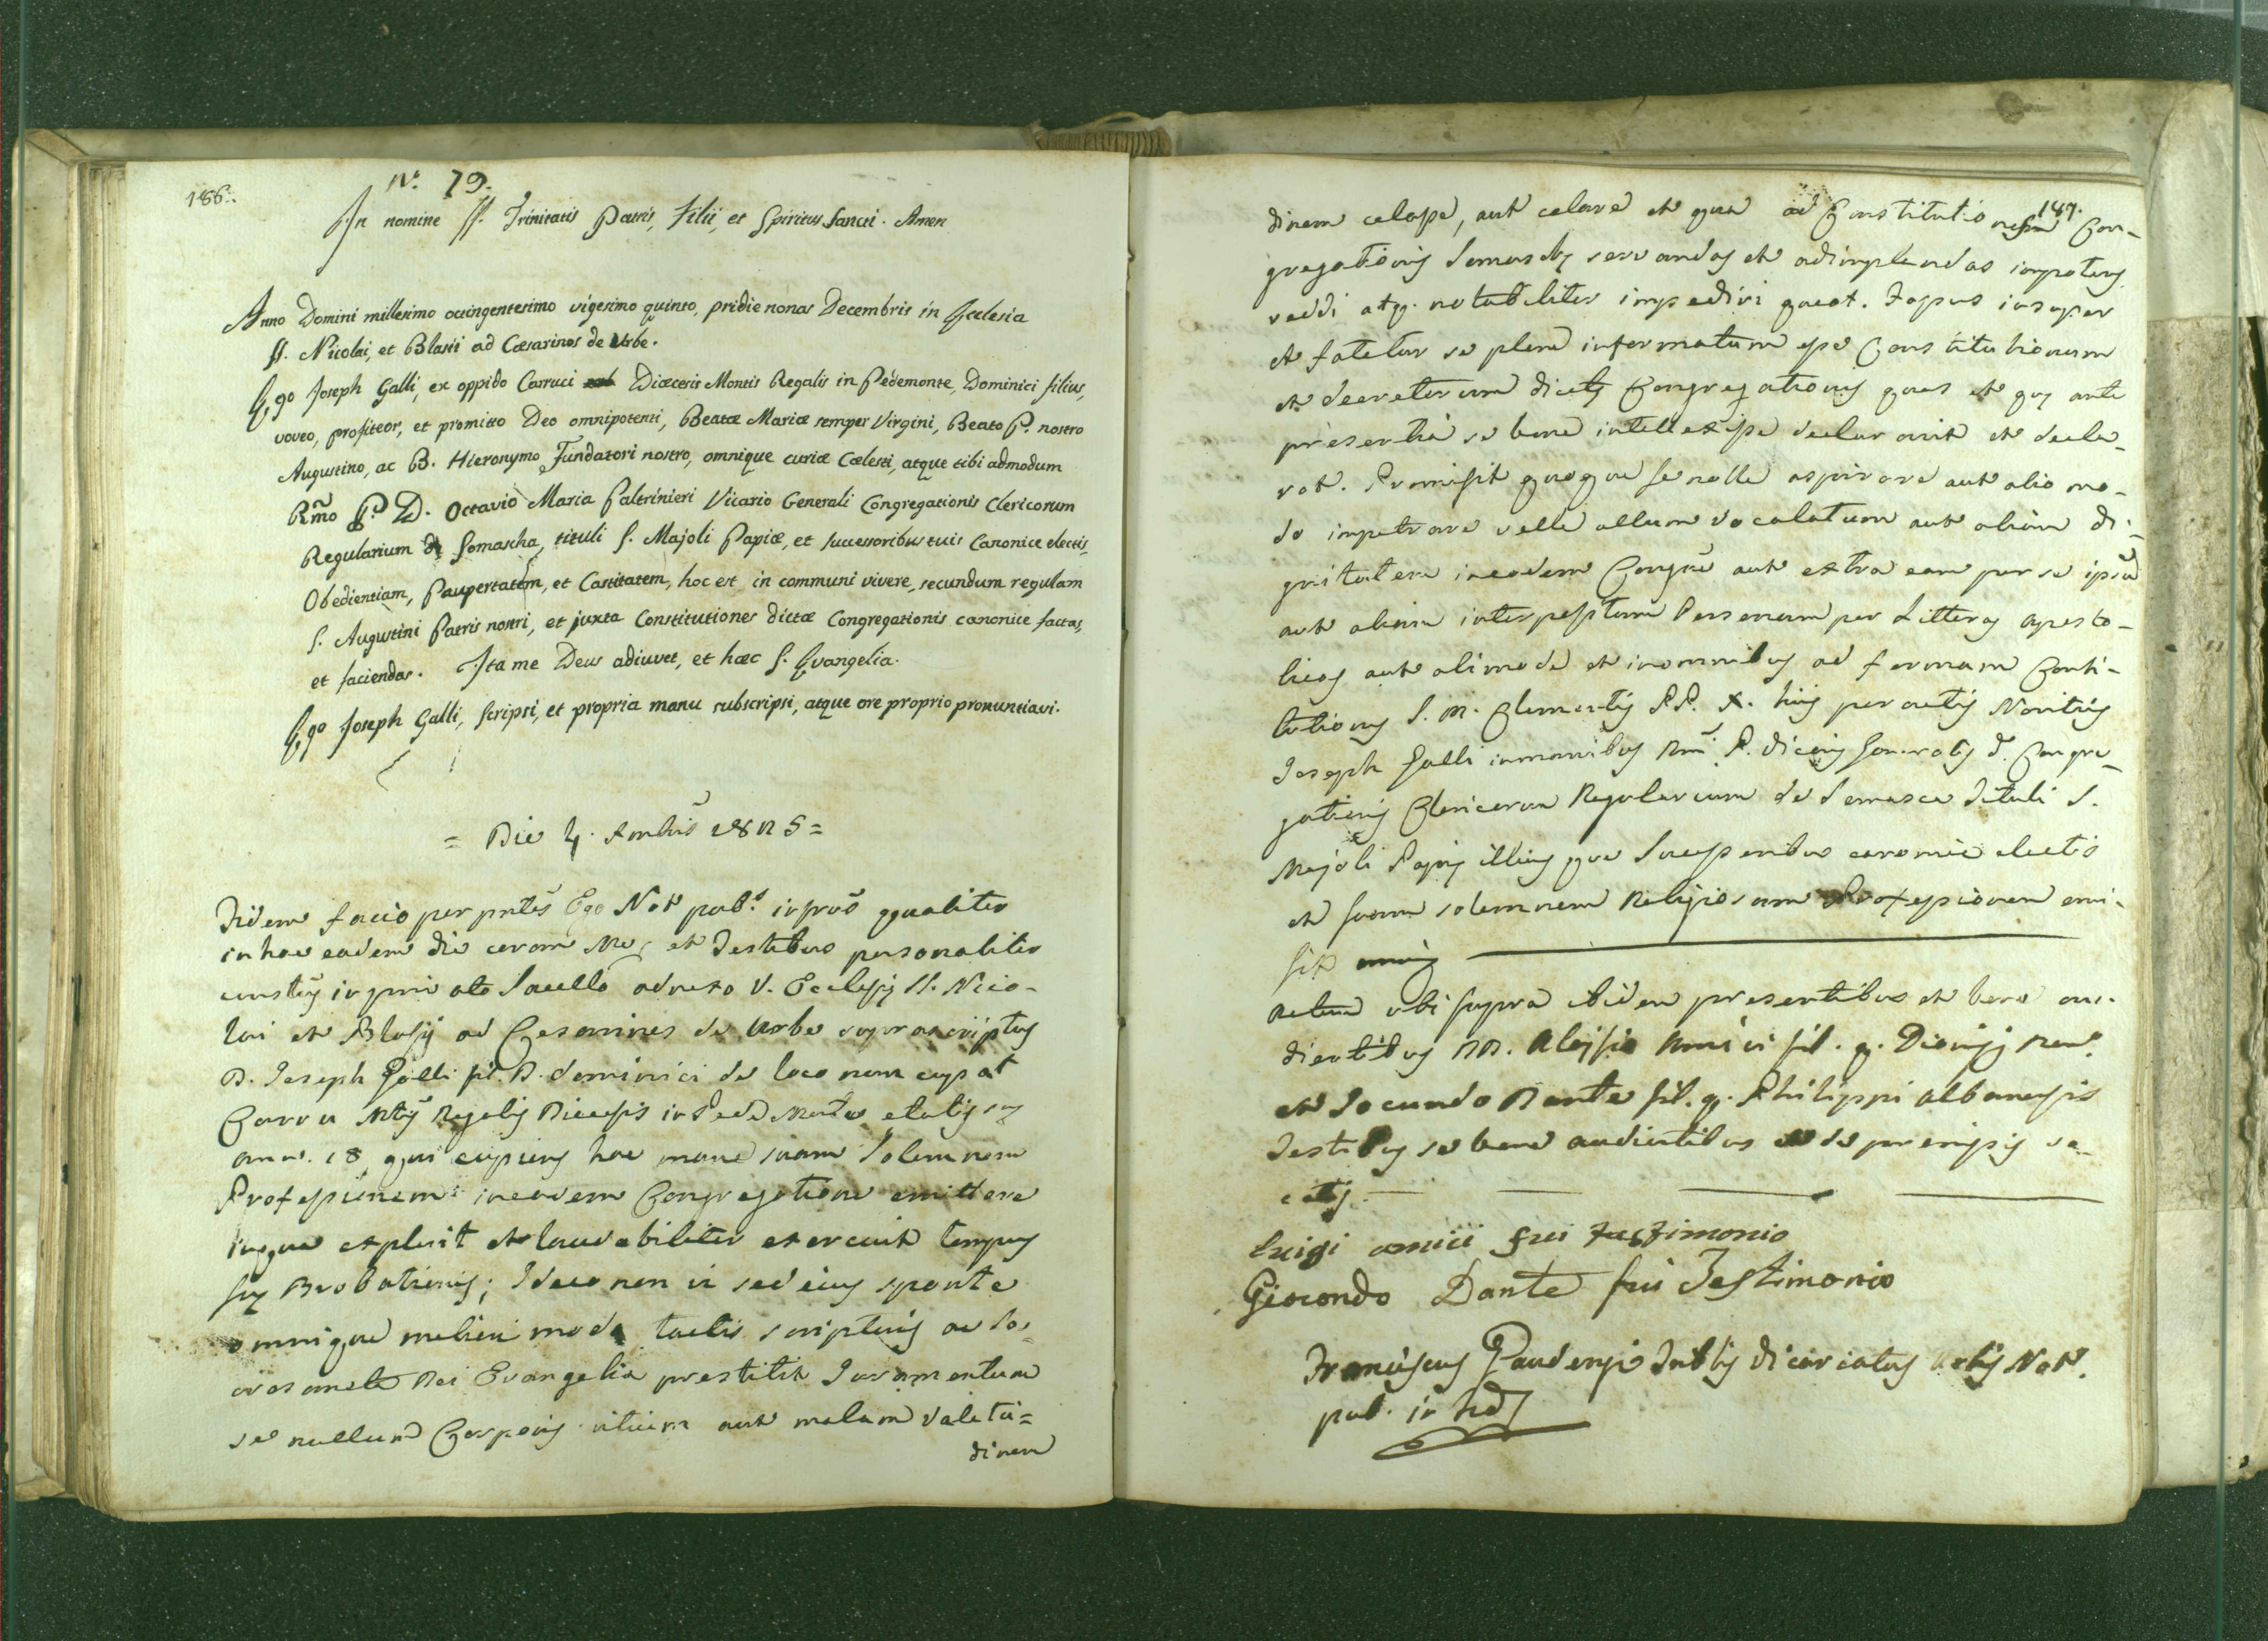 186.
N.° 79.
In nomine SS. Trinitatis Patris, Filii, et Spiritus Sancti. Amen
Anno Domini millesimo octingentesimo vigesimo quinto, pridie nonas Decembris in Ecclesia
SS. Nicolai, et Blasii ad Cæsarinos de Urbe.
Ego Joseph Galli, ex oppido Carruci Diœcesis Montis Regalis in Pedemonte, Dominici filius,
voveo, profiteor, et promitto Deo omnipotenti, Beatæ Mariæ semper Virgini, Beato P. nostro
Augustino, ac B. Hieronymo Fundatori nostro, omnique curiæ Cœlesti, atque tibi admodum
Rm̃o P. D. Octavio Maria Paltrinieri Vicario Generali Congregationis Clericorum
Regularium de Somascha, tituli S. Majoli Papiæ, et successoribus tuis Canonice electis,
Obedientiam, Paupertatem, et Castitatem, hoc est in communi vivere, secundum regulam
S. Augustini Patris nostri, et juxta Constitutiones dictæ Congregationis canonice factas,
et faciendas. Ita me Deus adiuvet, et hæc S. Evangelia.
Ego Joseph Galli, scripsi, et propria manu subscripsi, atque ore proprio pronuntiavi.
= Die 4. Xmbris 1825 =
Fidem facio per pntes Ego Not pub. qualiter
in hac eadem die coram Me, et Testibus personaliter
in privato Sacello adnexo V. Ecclesiȩ SS. Nico-
lai et Blasij ad Cesarines de Urbe suprascriptus
D. Joseph Galli fil. D. Dominici de loco nem cupat
Carru Mtis Regalis Diecesis in Pede Monte etatis suȩ
ann. 18 qui cupiens hac mane suam Solemnem
Professionem in eadem Congregatione emittere
inque explevit et laudabiliter exercuit tempus
suȩ Probationis; Ideo non vi sed eius sponte
omnique meliori modo tactis scripturis ac Sa-
crosancta Dei Evangelia prestitit Juramentum
se nullum Corporis vitium aut malam Valetu=
dinem
187.
dinem celasse, aut celare et qua ad Constitutiones Con-
gregationis Somaschȩ servandas et adimplendas impotens
reddi atq. notabiliter impediri queat. Fassus insuper
et fatetur se plene informatum esse Constitutionum
et decretorum dictȩ Congregationis quas et quȩ ante
presertia se bene intellexisse declaravit et decla-
rat. Promisit quoque se nolle aspirare aut alio mo-
do impetrare velle ullum vocalatum aut aliam di-
gnitatem in eadem Congne aut extra eam per se ipsũ
aut aliam interpositam Personam per Litteras aposto-
licas aut alimode et in omnibus ad formam Consti-
tutionis S. M. Clementis PP. X. his peractis Novitius
Joseph Galli in manibus Rm̃i P. Vicarij Generalis d. Congre-
gationis Clericorum Regularium de Somasca Tituli S.
Majoli Papiȩ illiusque Successoribus canonice electis
et suam solemnem Religiosam Professionem emi-
sit
Actum ubi supra ibidem presentibus et bene au-
dientibus DD. Aloysio Amici fil. q. Dionisij
et Jocundo Dante fil. q. Philippi Albanensis
Testibus se bene audientibus et de premissis vo-
catis.
luigi amici fui testimonio
Giocondo Dante fui Testimonio
Franciscus Gaudenzi Vicariatus Urbis Not.
pub. in fid